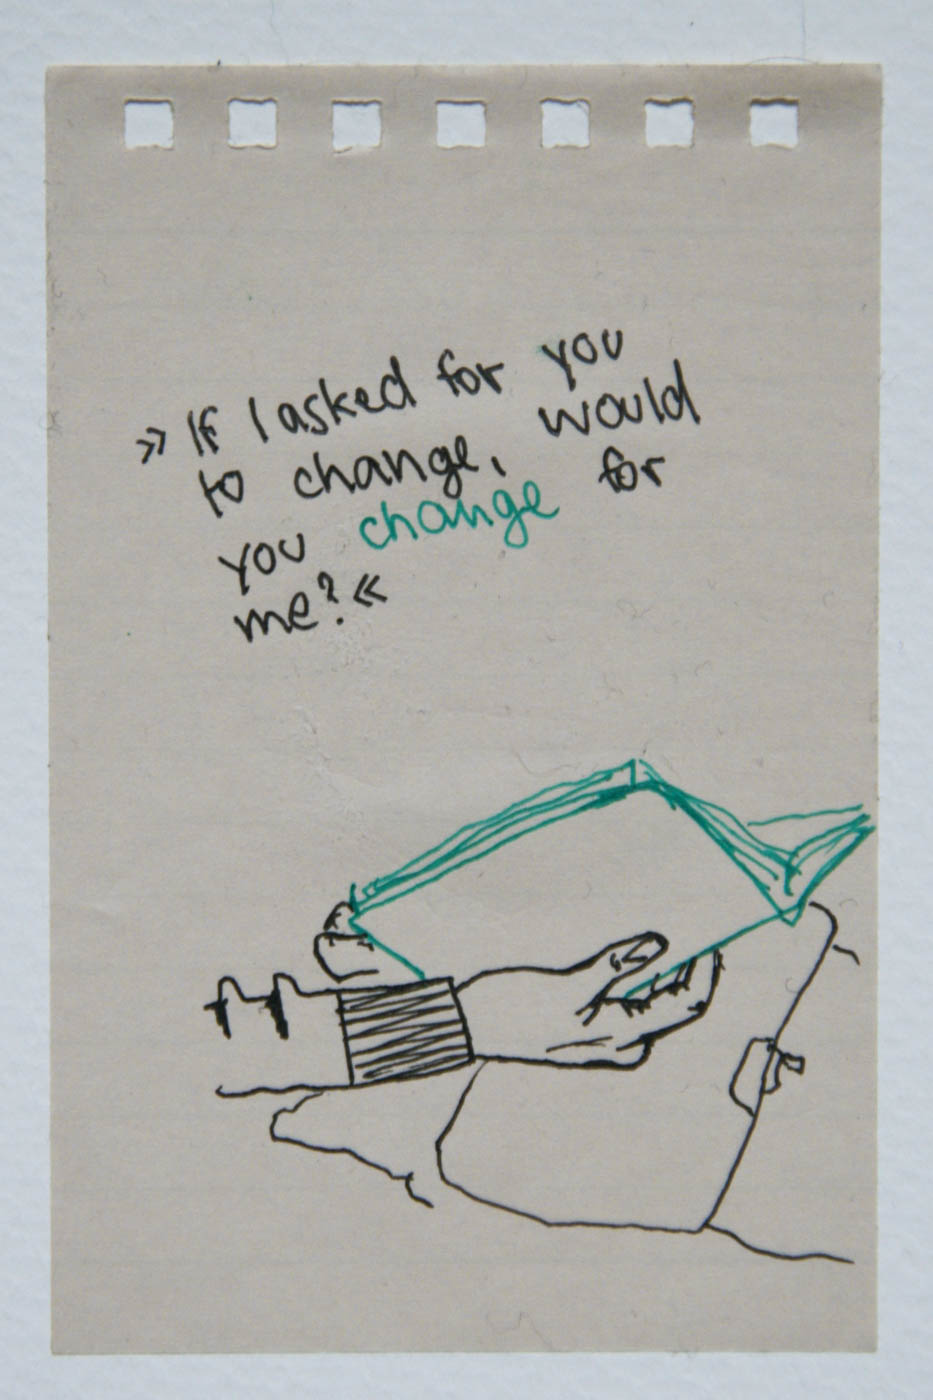 »If I asked for you
to change, would
you change for
me?«